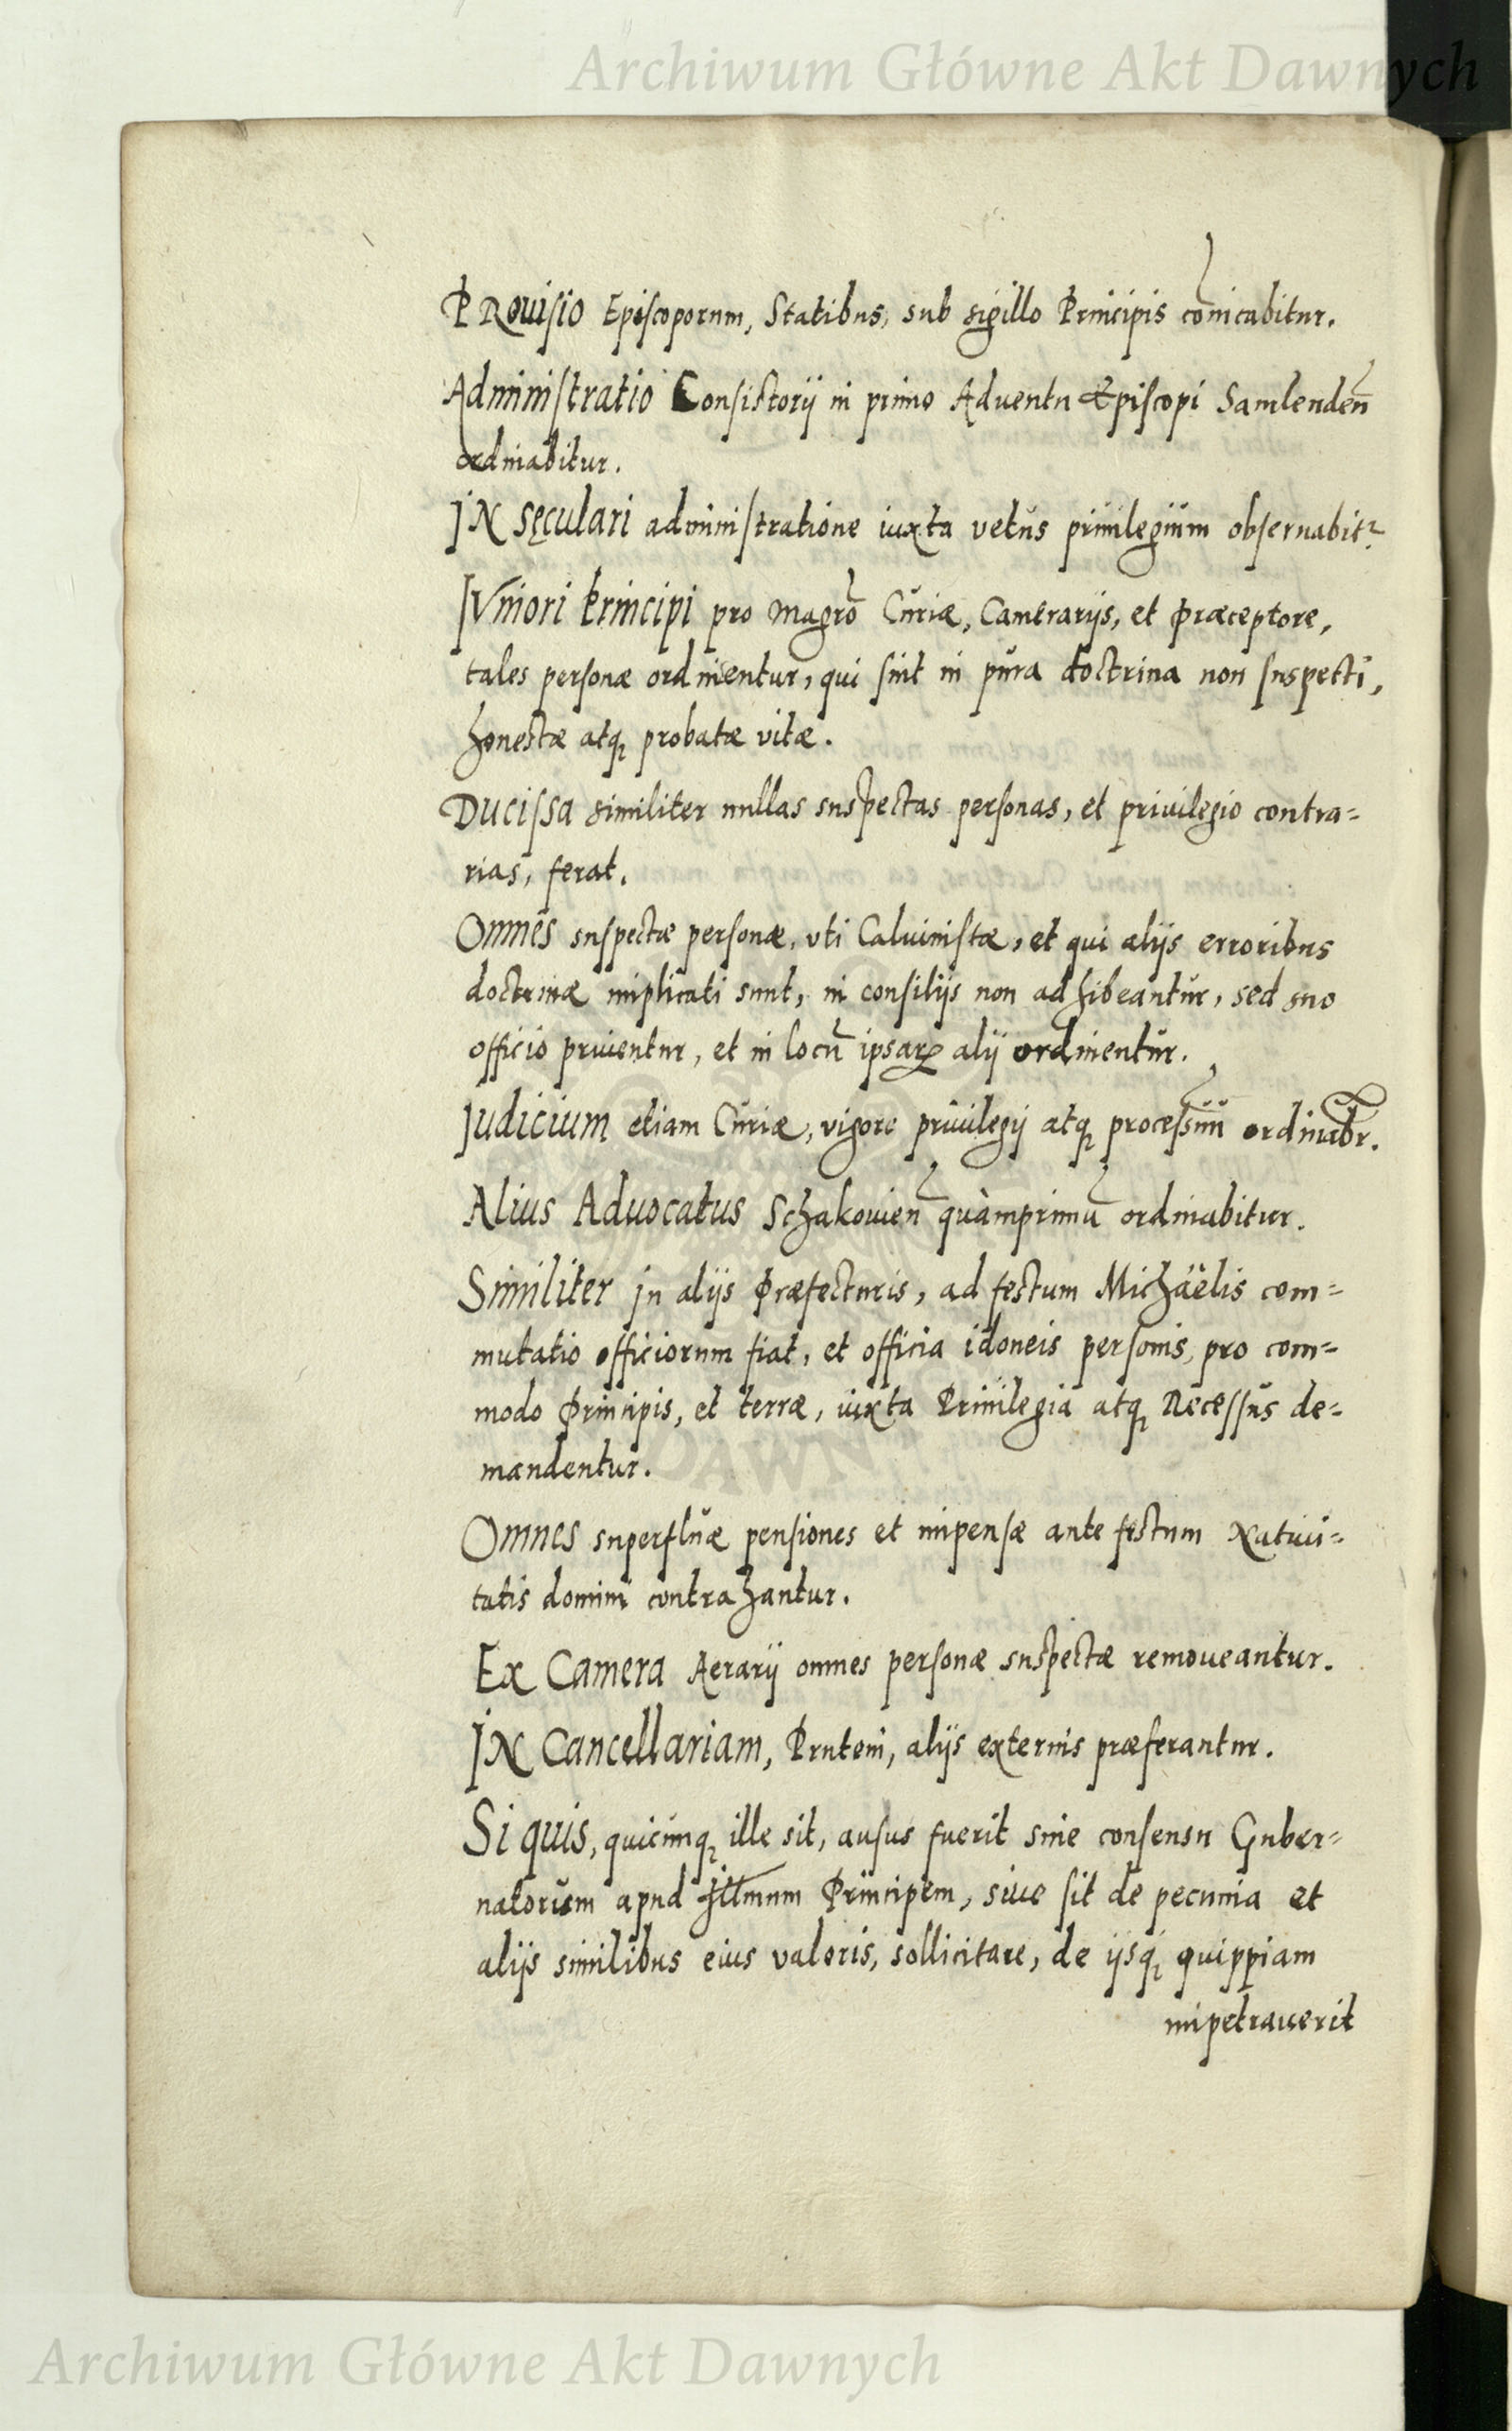 Archiwum Główne Akt Dawnych
PRouisio Episcoporum, Statibus, sub sigillo Principis com̄icabitur.
Administratio Consistorij in primo Aduentu Episcopi Samlenden̄
ordinabitur.
IN sęculari administratione iuxta vetus priuilegium obseruabitᷣ
IVniori Principi pro Magr̄o Curiæ, Camerarijs, et Præceptore,
tales personæ ordinentur, qui sint in pura doctrina non suspecti,
honestæ atq probatæ vitæ.
Ducissa similiter nullas suspectas personas, et priuilegio contra=
rias, ferat.
Omnes suspectæ personæ, vti Caluinistæ, et qui alijs erroribus
doctrinæ implicati sunt, in consilijs non adhibeantur, sed suo
officio priuentur, et in locū ipsarꝝ alij ordinentur.
Iudicium etiam Curiæ, vigore priuilegij atq processuū ordinabr.
Alius Aduocatus Schakouien̄ quàmprimū ordinabitur.
Similiter in alijs Præfecturis, ad festum Michaëlis com=
mutatio officiorum fiat, et officia idoneis personis, pro com=
modo Principis, et terræ, iuxta Priuilegia atq Recessus de=
mandentur.
Omnes superfluæ pensiones et impensæ ante festum Natiui=
tatis domini contrahantur.
Ex Camera Aerarij omnes personæ suspectæ remoueantur.
IN Cancellariam, Pruteni, alijs externis præferantur.
Si quis, quicunq ille sit, ausus fuerit sine consensu Guber=
natorum apud Illmum Principem, siue sit de pecunia et
alijs similibus eius valoris, sollicitare, de ijsq quippiam
impetrauerit
Archiwum Główne Akt Dawnych